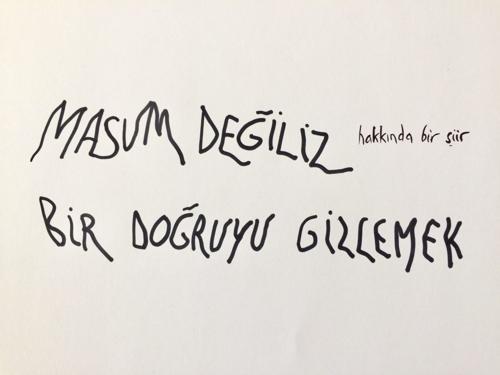 MASUM DEĞİLİZ hakkında bir şiir
BİR DOĞRUYU GİZLEMEK